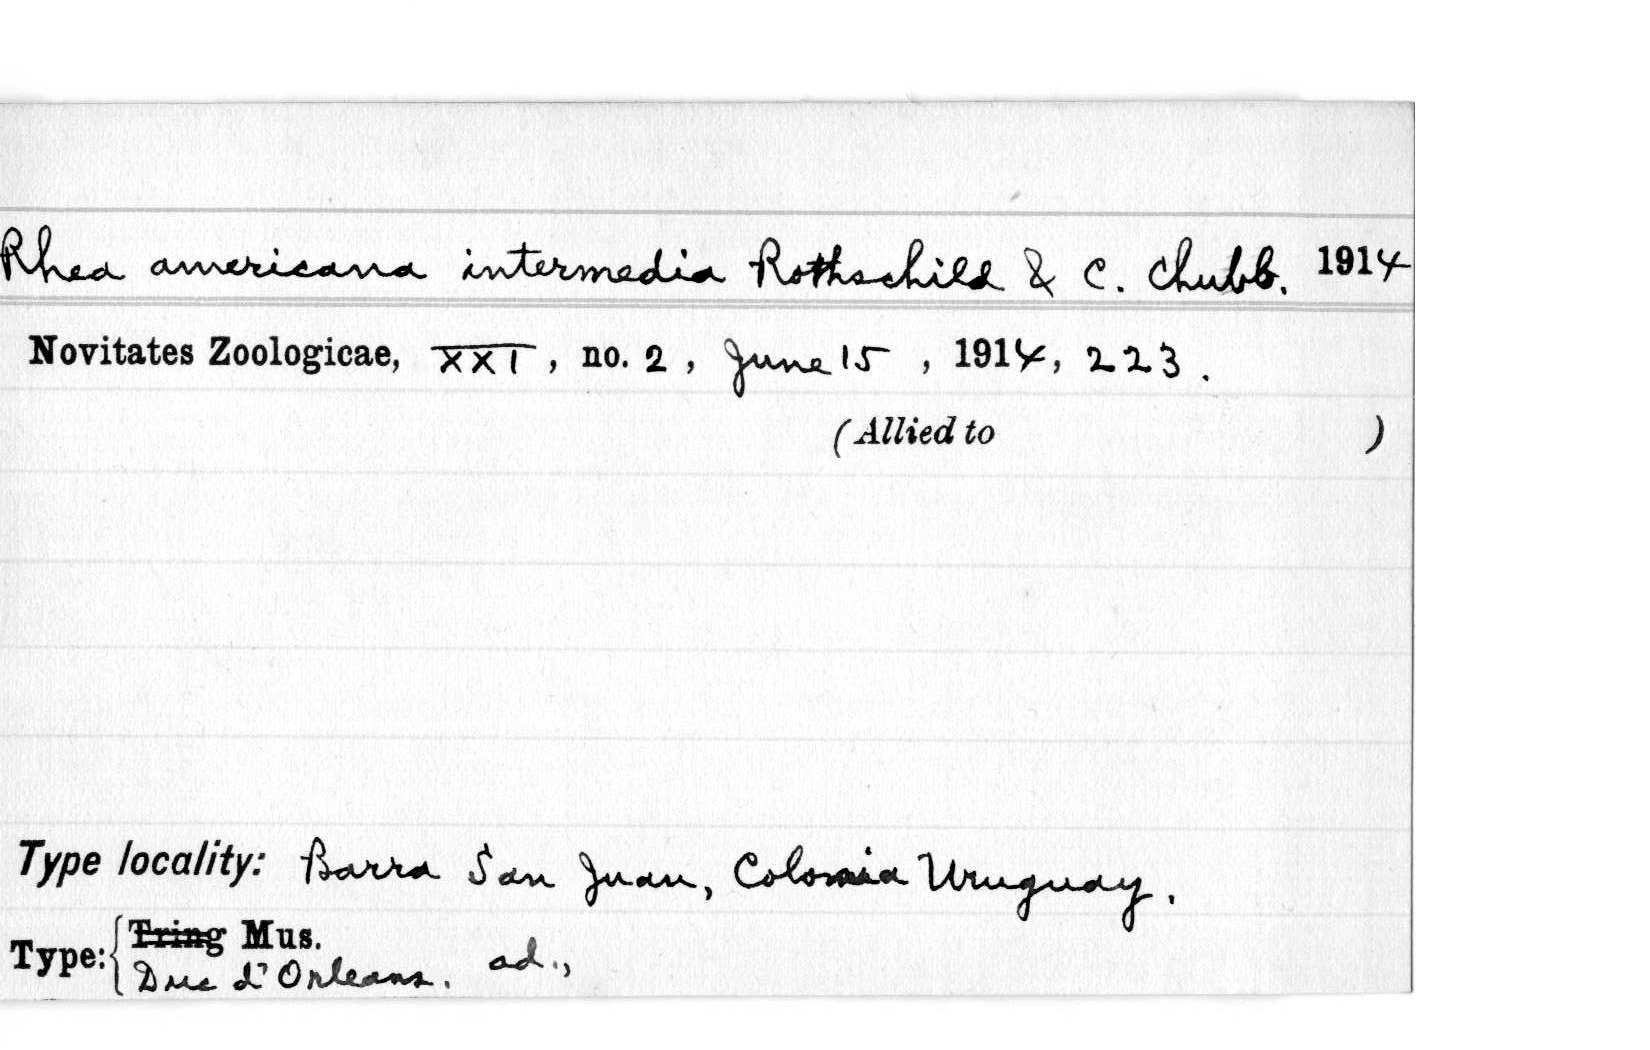 Rhea americana intermedia Rothschild & C. Chubb. 1914
Novitates Zoologicae, XXI, no. 2, June 15, 1914, 223.
(Allied to )
Type locality: Barra San Juan, Colonia Uruguay.
Type: { Tring Mus. ad.,
Duc d'Orleans.